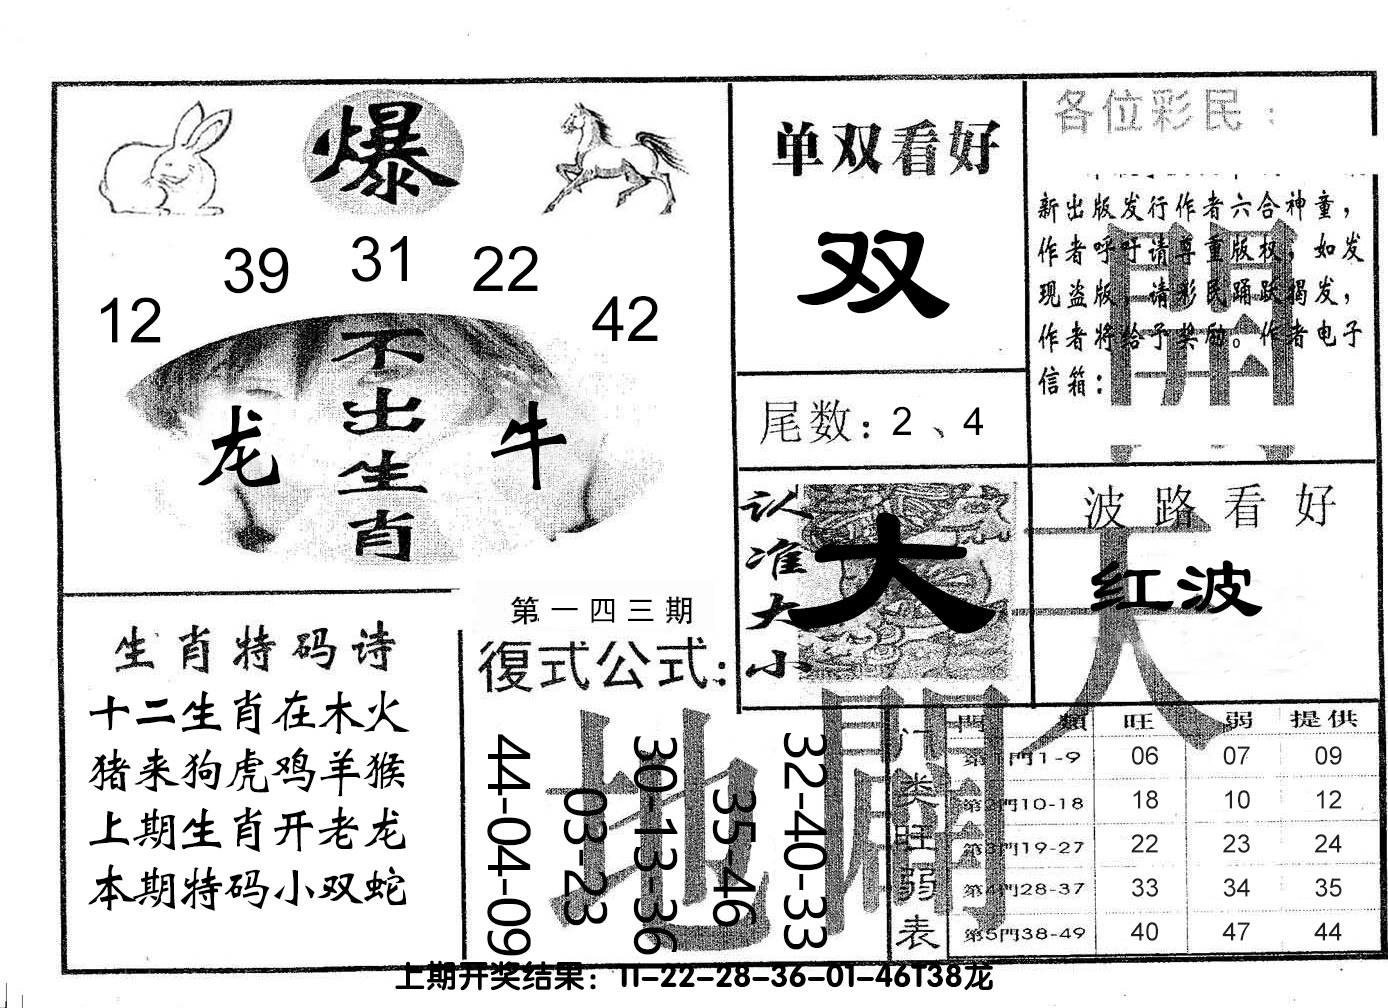 爆
39 31 22
12 42
不出生肖
龙 牛
单双看好
双
尾数：2、4
各位彩民：
新出版发行作者六合神童，
作者呼吁请尊重版权，如发
现盗版，请彩民踊跃揭发，
作者将给予奖励。作者电子
信箱：
認准大小
大
波路看好
红波
天
開
地
闢
生肖特码诗
十二生肖在木火
猪来狗虎鸡羊猴
上期生肖开老龙
本期特码小双蛇
第一四三期
復式公式：
44-04-09
03-23
30-13-36
35-46
32-40-33
门类旺弱表
門類 旺 弱 提供
第1門1-9 06 07 09
第2門10-18 18 10 12
第3門19-27 22 23 24
第4門28-37 33 34 35
第5門38-49 40 47 44
上期开奖结果：11-22-28-36-01-46T38龙